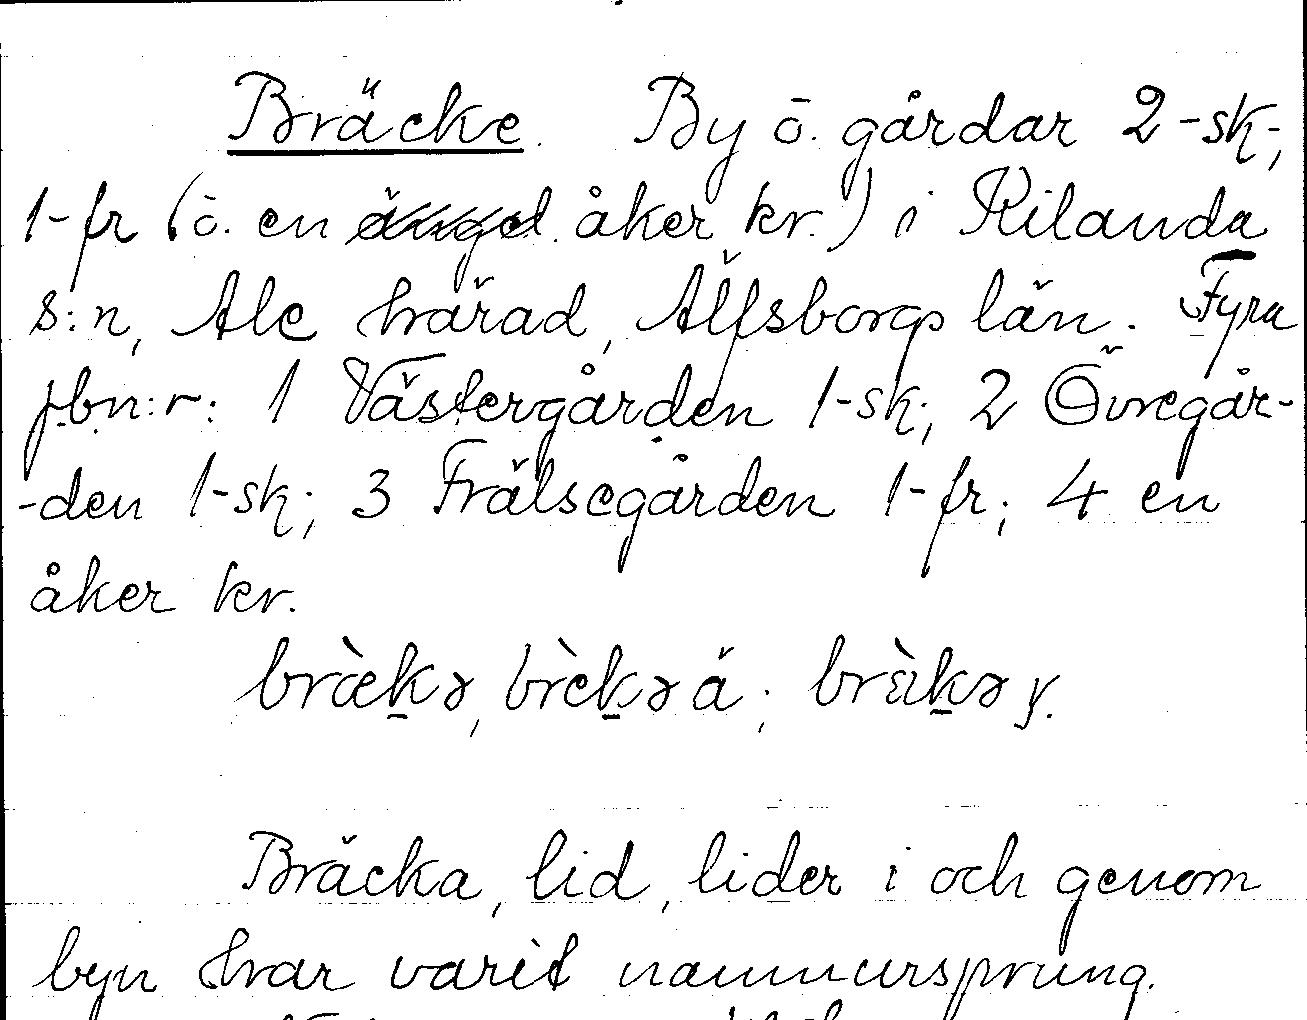 Bräcke. By o. gårdar 2-sk;
1-fr (o. en ängel åker kr.) i Kilanda
s:n, Ale härad, Älfsborgs län. Fyra
jbn:r: 1 Västergården 1-sk; 2 Övregår-
-den 1-sk; 3 Frälsegården 1-fr; 4 en
åker kr.
Bräcka, lid, lider i och genom
byn har varit namnursprung.